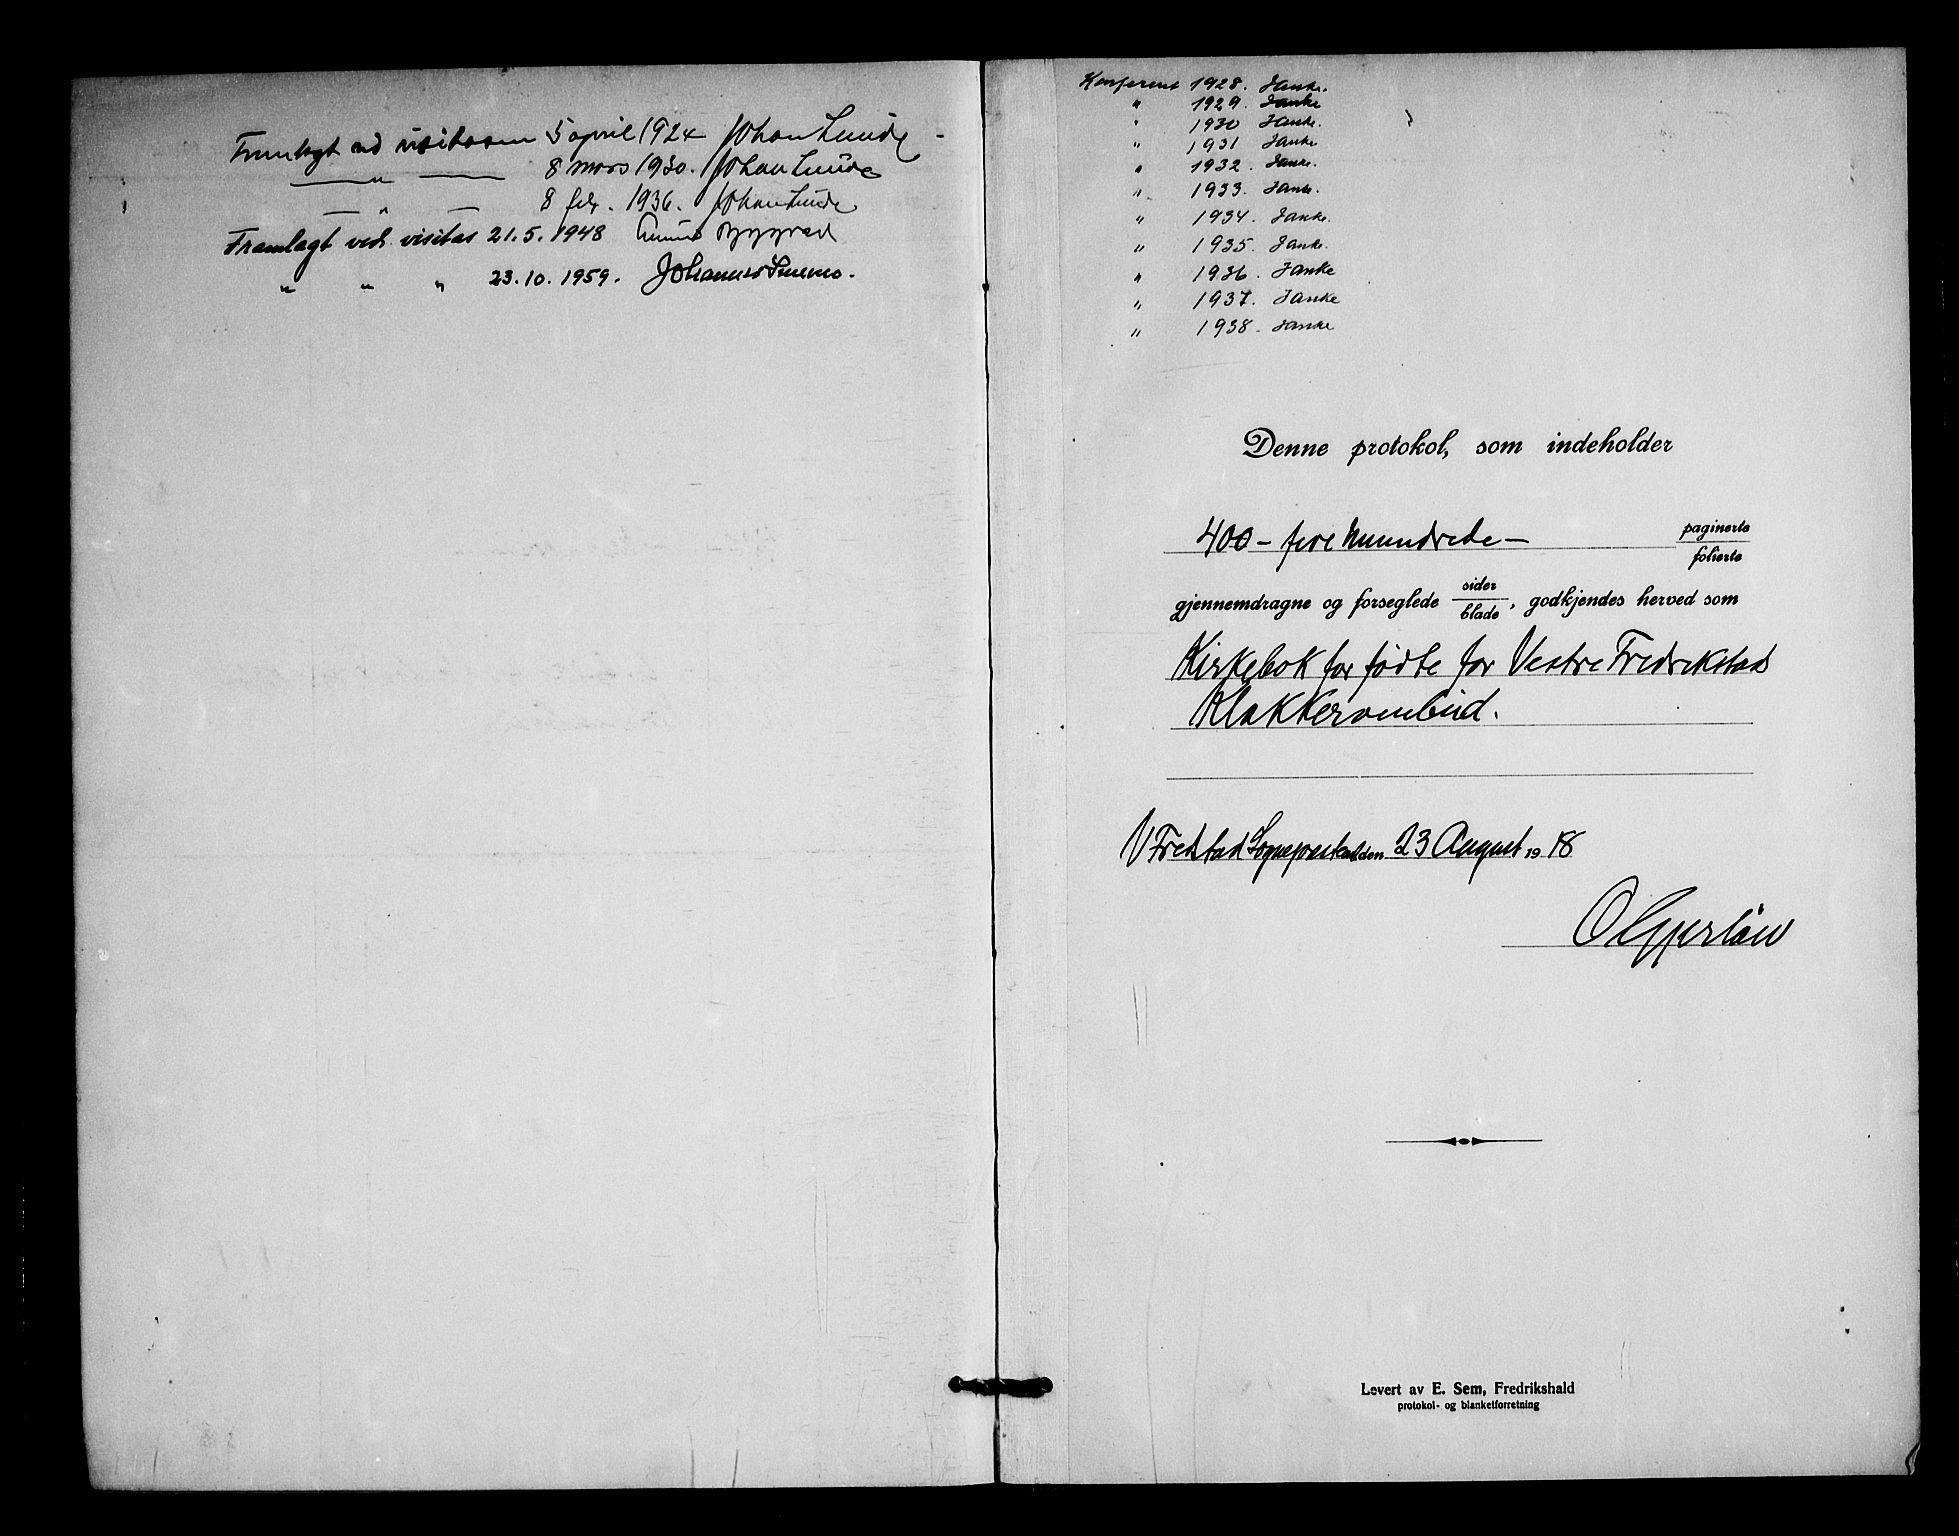 Fremlagt ved visitasen 5 april 1924 Johan Lunde
— " — 8 mars 1930. Johan Lunde
— " — 8 febr. 1936. Johan Lunde
Framlagt ved visitas 21.5.1948
" " " 23.10.1959. Johannes Smemo.
Konferert 1928. Janke.
" 1929. Janke
" 1930 Janke.
" 1931 Janke
" 1932. Janke.
" 1933. Janke.
" 1934. Janke.
" 1935. Janke.
" 1936. Janke
" 1937. Janke
" 1938. Janke
Denne protokol, som indeholder
400 – fire hundrede – paginerte
folierte
gjennemdragne og forseglede sider
blade, godkjendes herved som
Kirkebok for fødte for Vestre Fredrikstads
Klokkerombud.
V Fredstad Sogneprestemb. den 23 August 1918
Levert av E. Sem, Fredrikshald
protokol- og blanketforretning